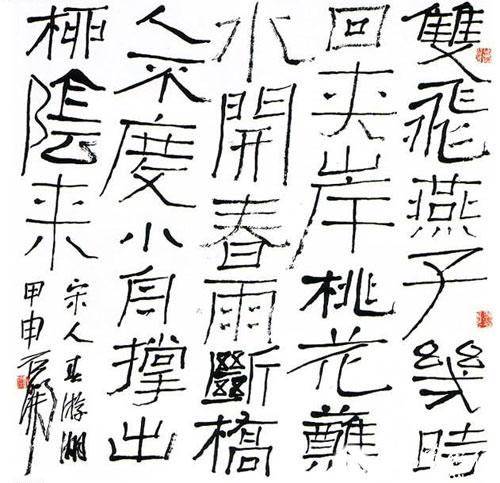 雙飛燕子幾時
回夾岸桃花蘸
水開春雨斷橋
人不度小舟撐出
柳陰来
宋人春游湖
甲申